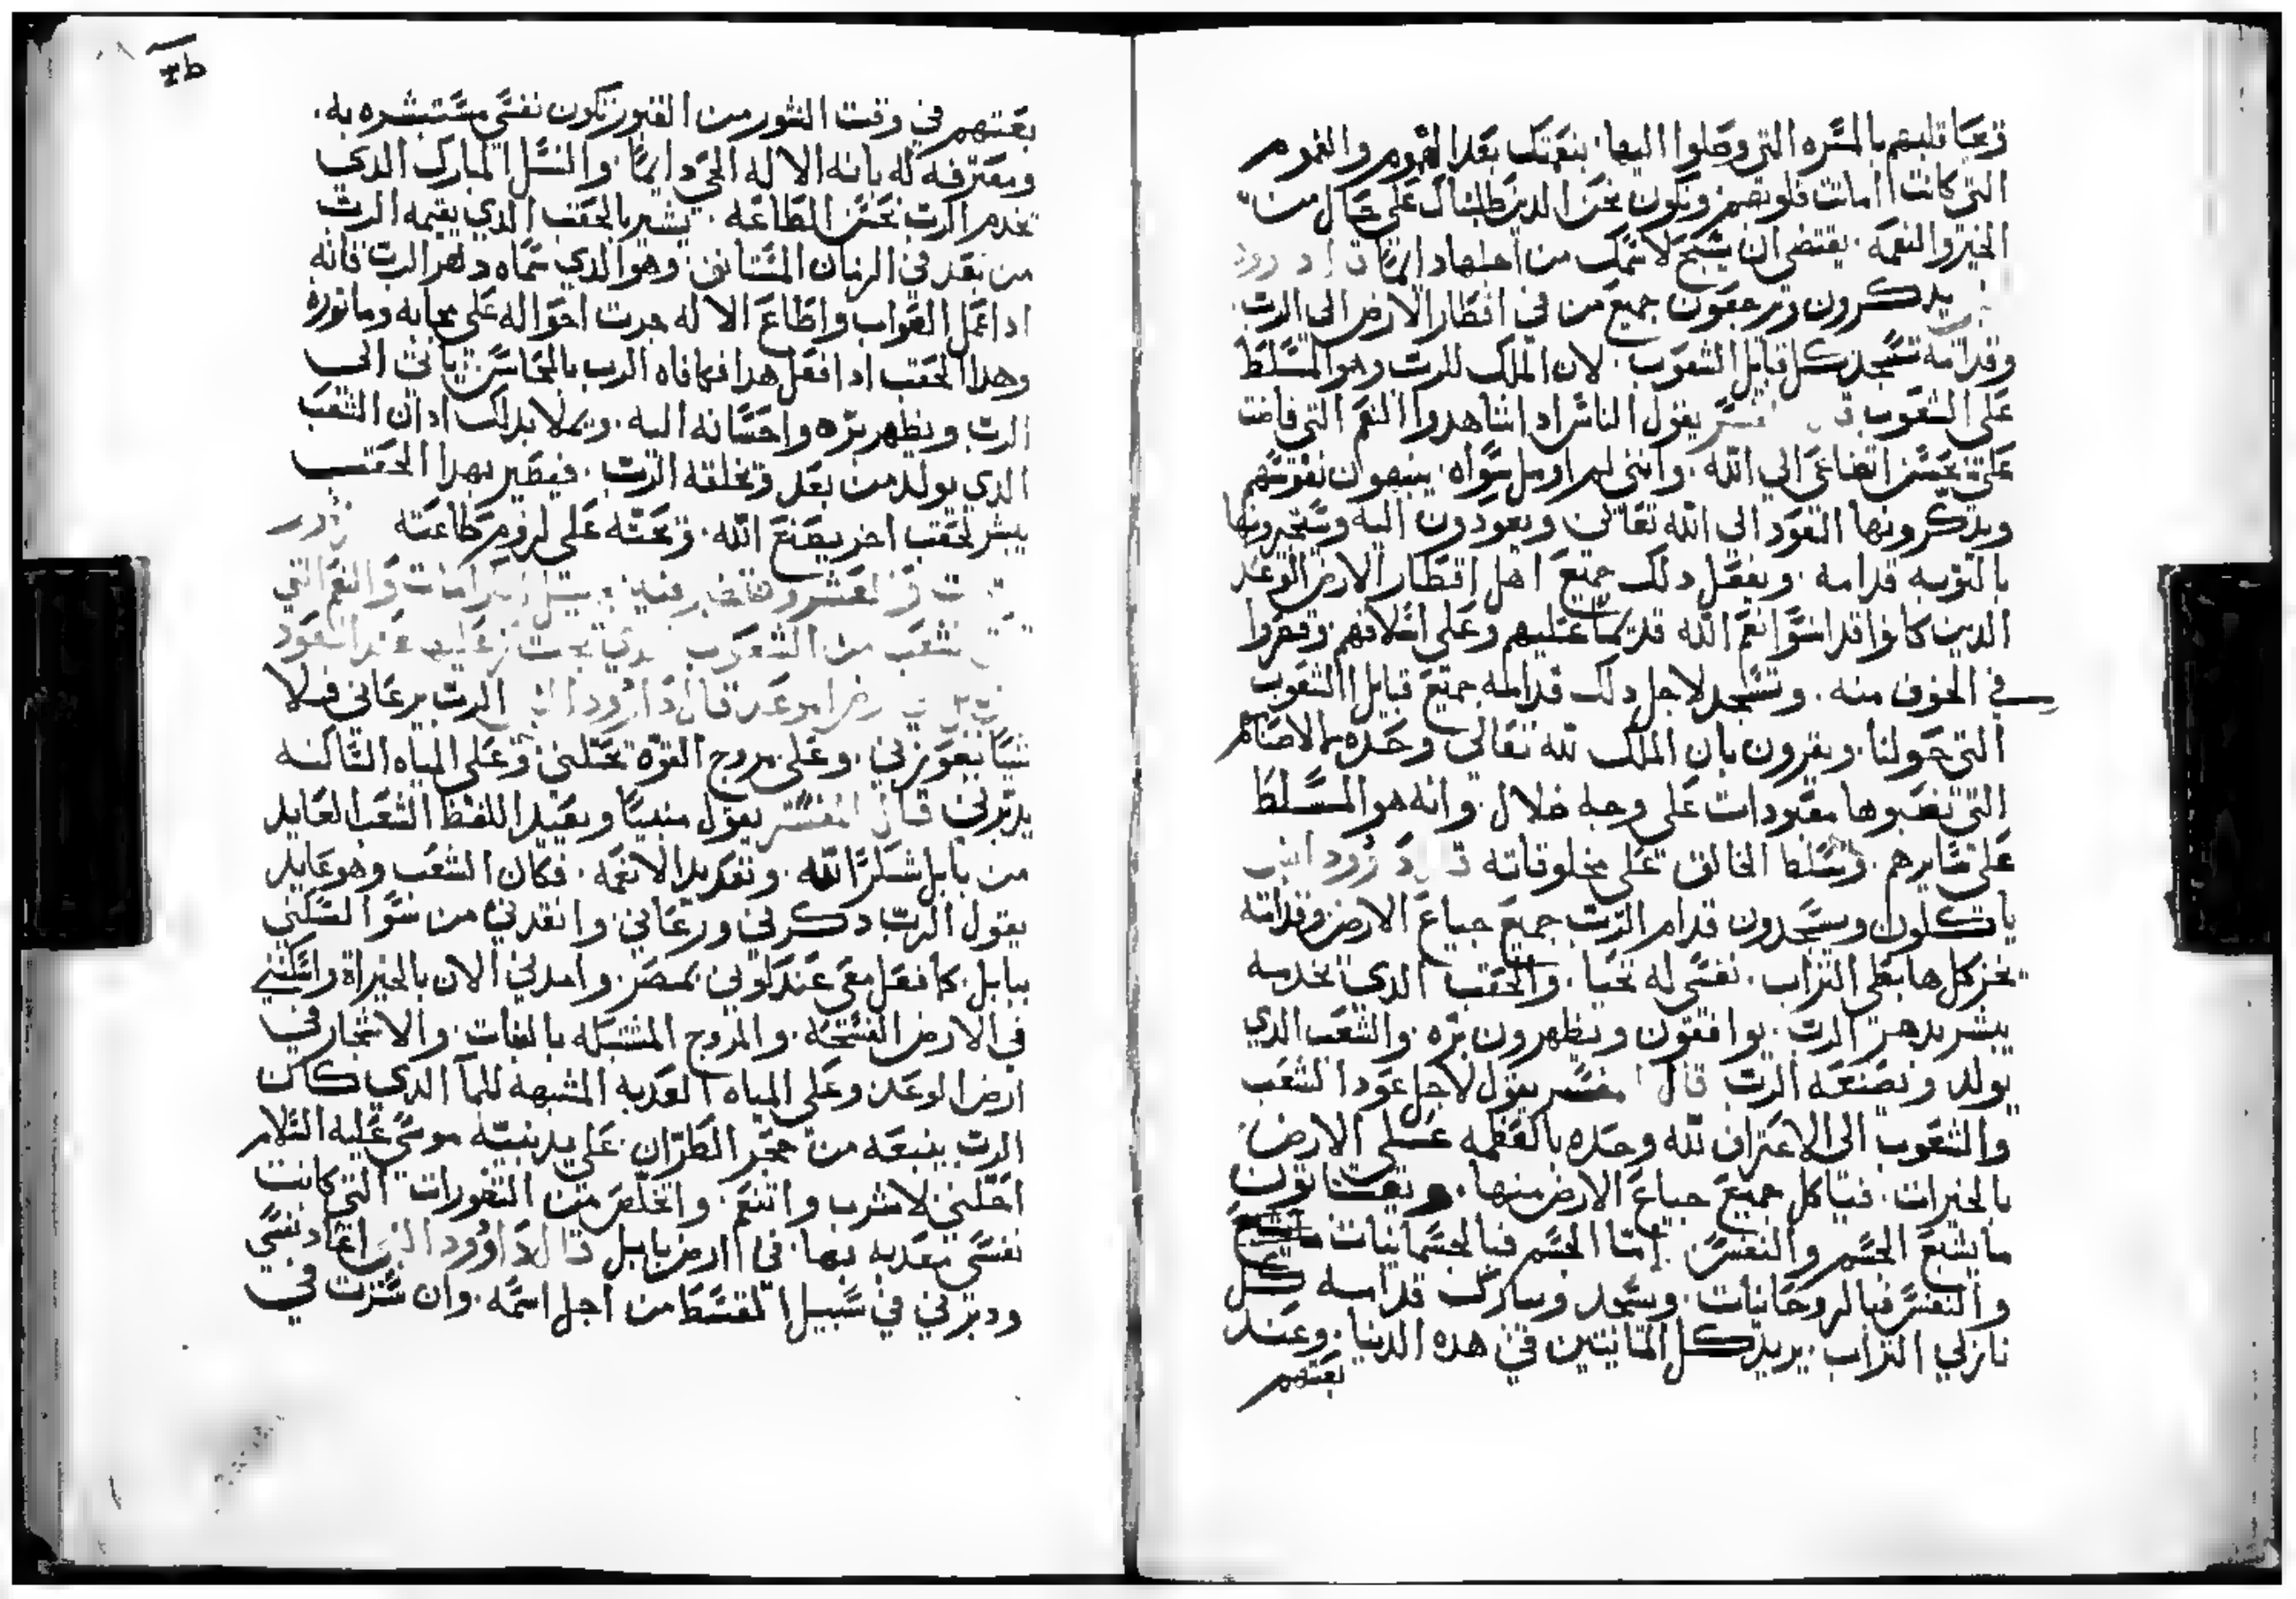 وتحيا قلبهم بالمسره التي وصلوا اليها. بنعمتك بعد الهموم والغموم
التي كانت اماتت قلوبهم ونكون نحن الدين طلبناك على حال من
الخير والنعمه. يقتضي ان نسبح لاسمك من اجلها دايمًا
يدكرون ويرجعون جميع من في اقطار الارض الى الرب
وقدامه تسجد كل قبايل الشعوب. لان الملك للرب وهو المسلط
على الشعوب المفسر يقول الناس ادا شاهدوا النعم التي فاضت
علي بحسن انضاعي الي الله. وانني لم اومل سواه. ينبهون نفوسهم
ويدكرونها العود الى الله تعالى ويعودون اليه وسجدون
بالتوبه قدامه. ويفعل دلك جميع اهل اقطار الارض الوعد
الدين كانوا قد انسوا نعم الله قديمًا عليهم وعلى اسلافهم وقصروا
في الخوف منه. وتسجد لاجل دلك قدامه جميع قبايل الشعوب
التي حولنا. ويقرون بان الملك لله تعالى وحده لا الاصنام
التي نصبوها معبودات على وجه ضلال. وانه هو المسلط
على سايرهم. وتسلط الخالق على مخلوقاته قال داوود النبي
ياكلون ويسجدون قدام الرب جميع جياع الارض وقدامه
تخر كل هابطي التراب. نفسي له تحيا. والحقب الدي تخدمه
يبشر بدهر الرب. يوافقون ويظهرون بره. والشعب الدي
يولد ويصنعه الرب قال المفسر يقول لاجل عود الشعب
والشعوب الى الاعتراف لله وحده بالعظمه على الارض
بالخيرات. فياكل جميع جياع الارض منها.
ما يشبع الجسم والنفس. امّا الجسم فبالجسمانيات
والنفس فبالروحانيات. وسجد وتبارك قدامه كل
نازلي التراب. يريد كل المايتين في هده الدنيا. وعند
بعثهم
بعثهم في وقت النشور من القبور تكون نفسي مستبشره به.
ومعترفه له بانه الاله الحي دايمًا. والنسل المبارك الدي
تخدم الرب بحسن الطاعه. يشير بالحقب الدي يقيمه الرب
من بعد في الزمان المستانف. وهو الدي سماه دهر الرب فانه
ادا عمل الصواب واطاع الاله جرت احواله على محابه وماثوره
وهدا الحقب ادا فعل هدا فكافاه الرب بالمحاسن ياتي الى
الرب ويظهر بره واحسانه اليه. ويملا بدلك ادان الشعب
الدي يولد من بعد وتخلقه الرب. فيصير بهدا الحقب
يبشر لحقب اخر يصنع الله. وتحثه على لزوم طاعته
والعشرون والنعم التي
شعب من الشعوب الدي عند العود
ارض الموعد قال داوود النبي الرب يرعاني فلا
شيًا يعوزني. وعلى مروج القوة تحلني وعلى المياه الساكنه
يدبرني قال المفسر يقول منبيًا وبعيد اللفظ الشعب العايد
من بابل شكرًا لله. وتعديدًا لانعمه. فكان الشعب وهو عايد
يقول الرب دكرني ورعاني. وانقدني من سو السكنى
ببابل. كما فعل معي عند كوني بمصر. وامدني الان بالخيراة واسكنني
في الارض الفسحه. والمروج المشتبكه بالنبات. والاشجار في
ارض الوعد. وعلى المياه العدبه المشبهه للمآ الدي كان
الرب ينبعه من حجر الطران. على يد نبيه موسى عليه السلام
احلني لاشرب واتنعم. واتخلص من التغورات التي كانت
نفسي معدبه بها. في ارض بابل قال داوود النبي اعاد نفسي
ودبرني في سبيل القسط من اجل اسمه. وان سرت في